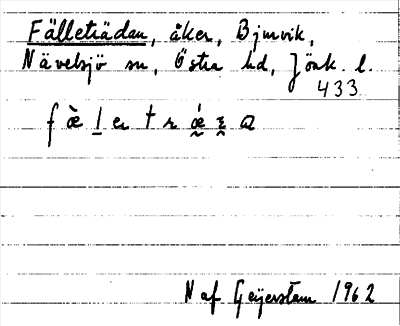 Fälleträdan, åker, Bjurvik,
Nävelsjö sn, Östra hd, Jönk. l.
433
f æ̀ l e t r ǽ z a
N af Geijerstam 1962